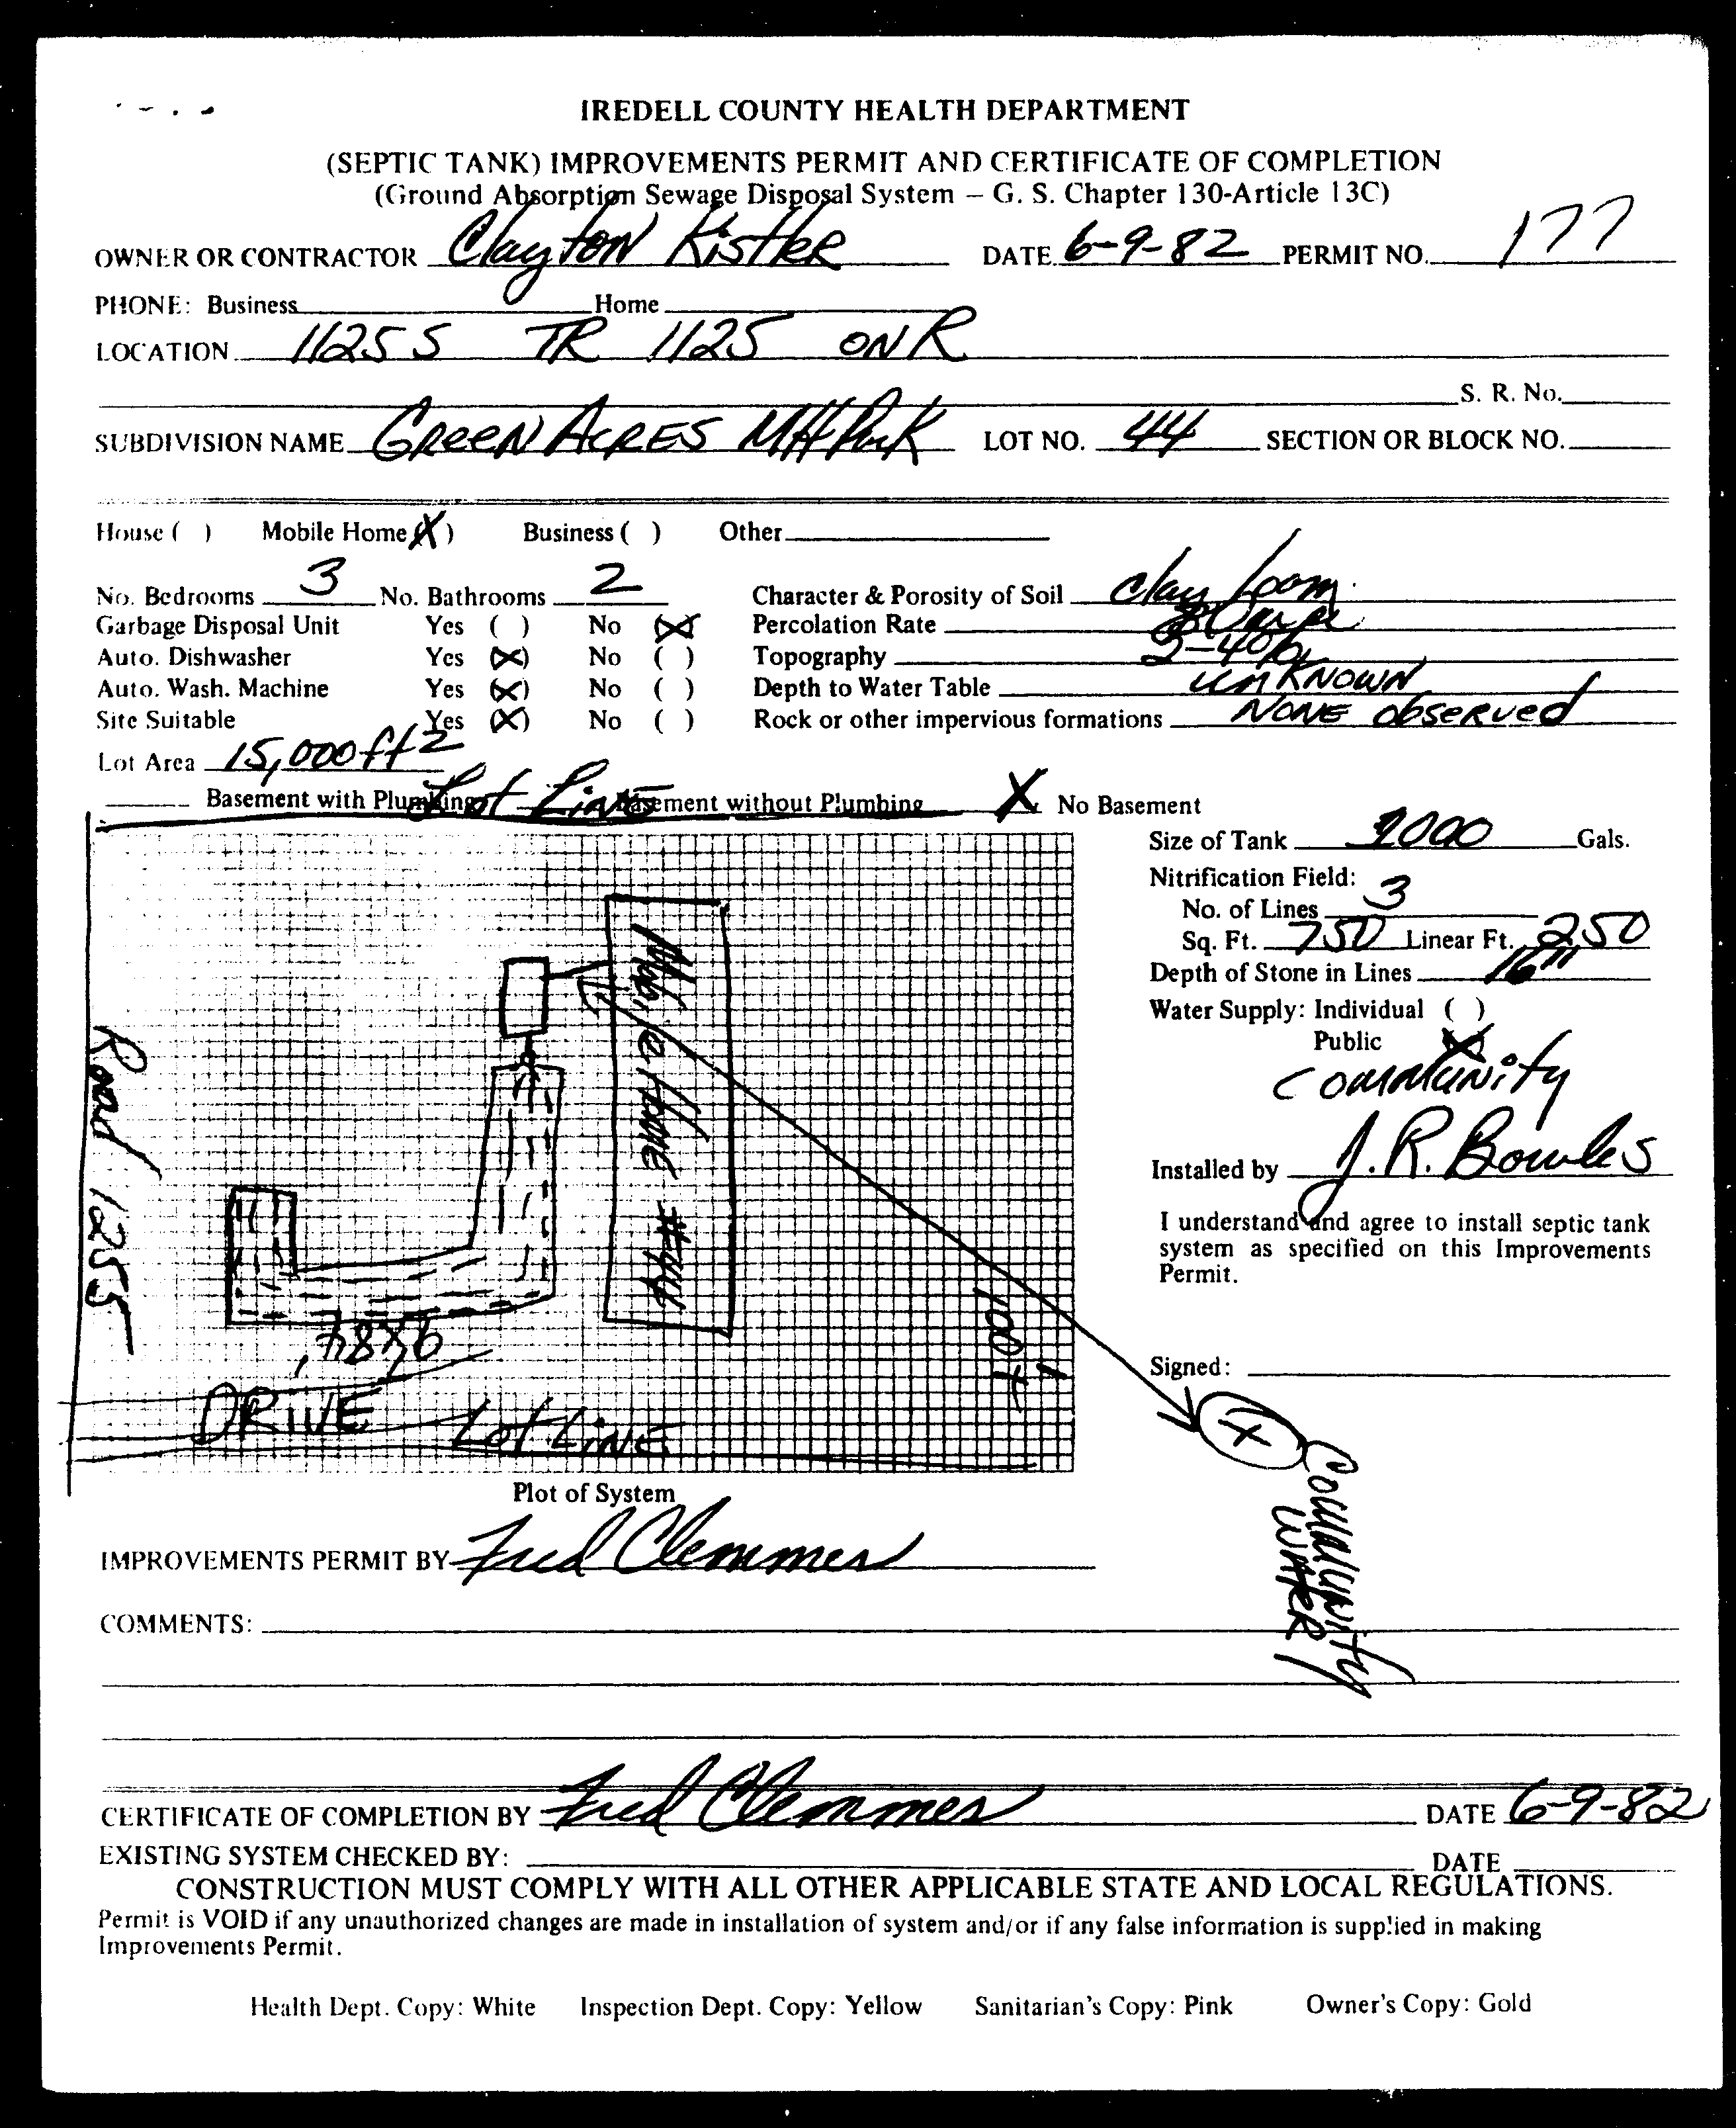 IREDELL COUNTY HEALTH DEPARTMENT
(SEPTIC TANK) IMPROVEMENTS PERMIT AND CERTIFICATE OF COMPLETION
(Ground Absorption Sewage Disposal System – G. S. Chapter 130-Article 13C)
OWNER OR CONTRACTOR Clayton Kistler DATE 6-9-82 PERMIT NO. 177
PHONE: Business Home
LOCATION 1125 S TR 1125 ON R
S. R. No.
SUBDIVISION NAME GREEN ACRES MH Park LOT NO. 44 SECTION OR BLOCK NO.
House ( ) Mobile Home (X) Business ( ) Other
No. Bedrooms 3 No. Bathrooms 2 Character & Porosity of Soil Clay loom
Garbage Disposal Unit Yes ( ) No (X) Percolation Rate
Auto. Dishwasher Yes (X) No ( ) Topography 2-4%
Auto. Wash. Machine Yes (X) No ( ) Depth to Water Table UNKNOWN
Site Suitable Yes (X) No ( ) Rock or other impervious formations NONE observed
Lot Area 15,000 ft2
Basement with Plumbing Basement without Plumbing X No Basement
Lot Line
Size of Tank 1000 Gals.
Nitrification Field:
No. of Lines 3
Sq. Ft. 750 Linear Ft. 250
Depth of Stone in Lines 16"
Water Supply: Individual ( )
Public (X)
COMMUNITY
Installed by J. R. Bowles
I understand and agree to install septic tank
system as specified on this Improvements
Permit.
Signed:
Mobile Home #44
Road 1255
100'+
DRIVE
Lot Line
X
COMMUNITY
WATER
Plot of System
IMPROVEMENTS PERMIT BY Fred Clemmer
COMMENTS:
CERTIFICATE OF COMPLETION BY Fred Clemmer DATE 6-9-82
EXISTING SYSTEM CHECKED BY: DATE
CONSTRUCTION MUST COMPLY WITH ALL OTHER APPLICABLE STATE AND LOCAL REGULATIONS.
Permit is VOID if any unauthorized changes are made in installation of system and/or if any false information is supplied in making
Improvements Permit.
Health Dept. Copy: White Inspection Dept. Copy: Yellow Sanitarian's Copy: Pink Owner's Copy: Gold